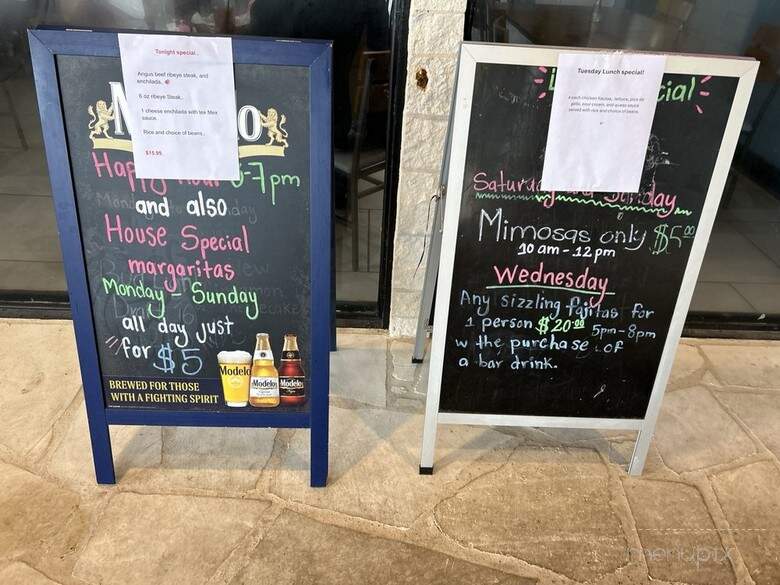 Tonight special..
Angus beef ribeye steak, and
enchilada..
6 oz ribeye Steak..
1 cheese enchilada with tex Mex
sauce.
Rice and choice of beans..
$15.99.
-7pm
and also
House Special
margaritas
Monday - Sunday
all day just
for $5
Modelo
Modelo
Modelo
BREWED FOR THOSE
WITH A FIGHTING SPIRIT
Tuesday Lunch special!
rice and choice of beans.
cial
Sunday
Mimosas only $5.00
10 am - 12 pm
Wednesday
Any sizzling fajitas for
1 person $20.00 5pm-8pm
w the purchase of
a bar drink.
menupix